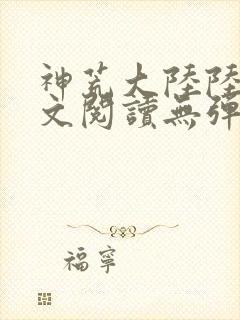 神荒大陸陸
文閱讀無彈
福寧